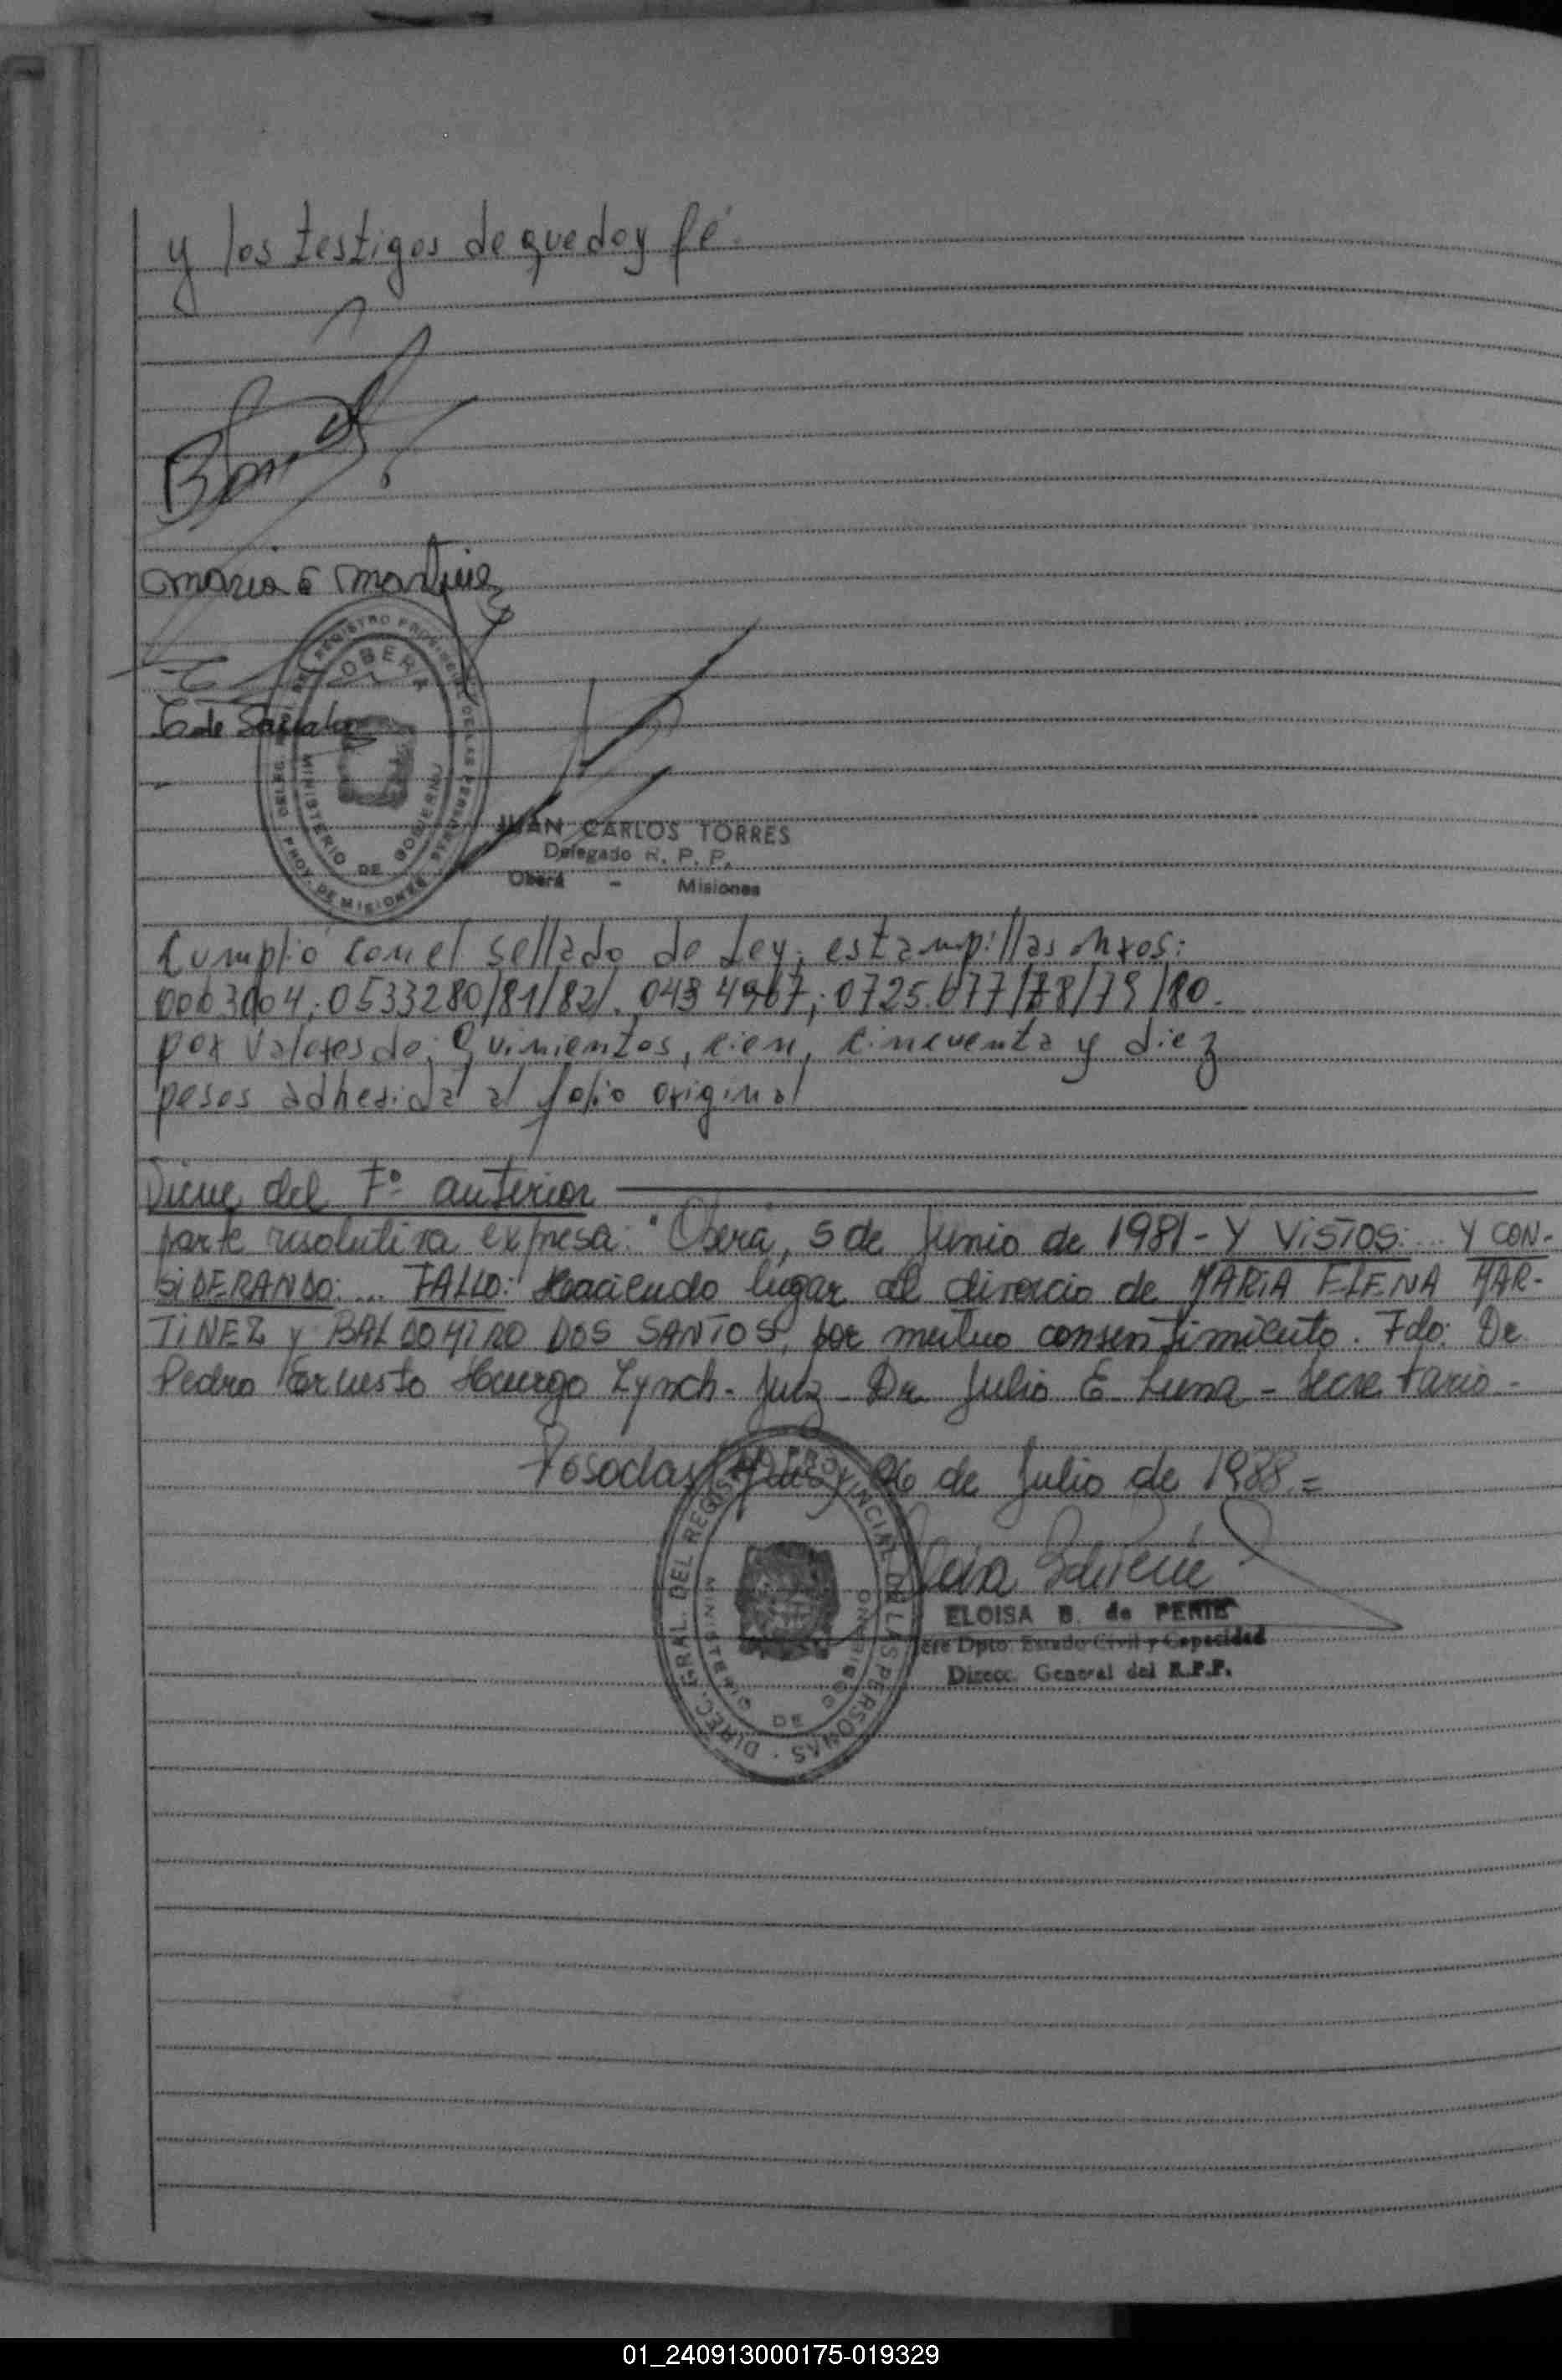 y los testigos de que doy fé.
Maria E Martinez
OBERA
MINISTERIO DE GOBIERNO
PROV. DE MISIONES
JUAN CARLOS TORRES
Delegado R. P. P.
Oberá - Misiones
Cumplió con el sellado de Ley; estampillas nros:
0003004; 0533280/81/82/. 0434967; 0725.077/78/79/80.
por valores de: Quinientos, cien, cincuenta y diez
pesos adhesida al folio original
Viene del Fº anterior
parte resolutiva expresa: "Oberá, 5 de Junio de 1981 - Y VISTOS: ... Y CON-
SIDERANDO: ... FALLO: Haciendo lugar al divorcio de MARIA ELENA MAR-
TINEZ y BALDOMIRO DOS SANTOS, por mutuo consentimiento. Fdo: Dr.
Pedro Ernesto Lynch - Juez - Dr Julio E. Luna - Secretario -
Posadas, 26 de Julio de 1988.=
ELOISA B. de PERIE
Jefe Dpto. Estado Civil y Capacidad
Direcc. General del R.P.P.
DIREC. GRAL. DEL REGISTRO PROVINCIAL DE LAS PERSONAS
MINISTERIO DE GOBIERNO
01_240913000175-019329